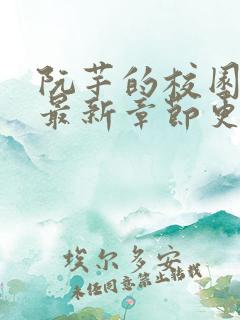 阮芋的校园
最新章节更
埃尔多安
未经同意禁止转载